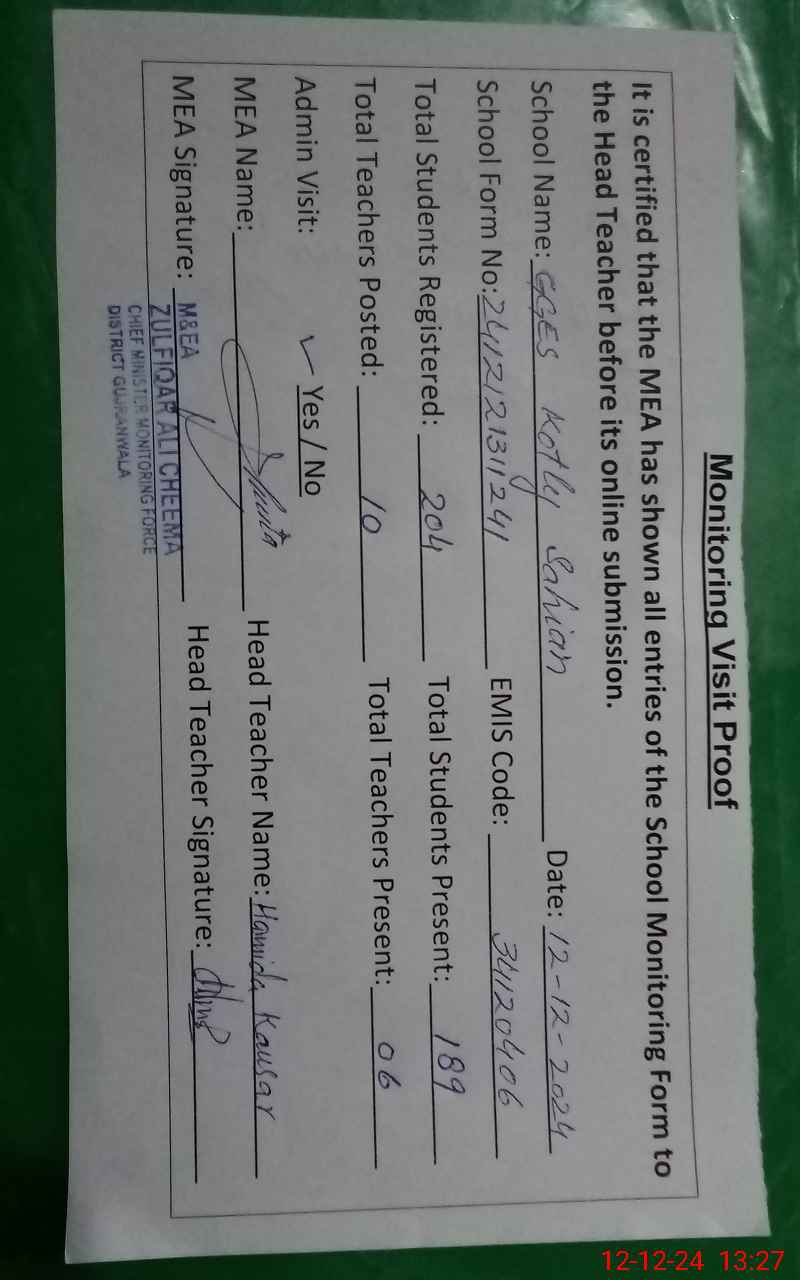 Monitoring Visit Proof
It is certified that the MEA has shown all entries of the School Monitoring Form to
the Head Teacher before its online submission.
School Name: GGES Kotly Sahian Date: 12-12-2024
School Form No: 241212131241 EMIS Code: 34120406
Total Students Registered: 204 Total Students Present: 189
Total Teachers Posted: 10 Total Teachers Present: 06
Admin Visit: ✓ Yes / No
MEA Name: Head Teacher Name: Hamida Kausar
MEA Signature: Head Teacher Signature:
M&EA
ZULFIQAR ALI CHEEMA
CHIEF MINISTER MONITORING FORCE
DISTRICT GUJRANWALA
12-12-24 13:27